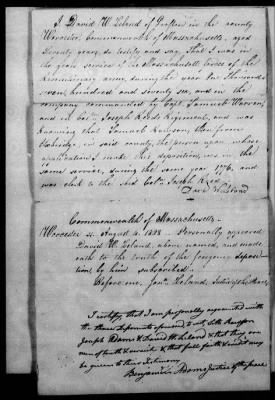 I David W Leland of Grafton in the county
Worcester, Commonwealth of Massachusetts, aged
Seventy years, do certify and say, That I was in
the same service of the Massachusetts troops of the
Revolutionary army, during the year One thousand
seven hundred and seventy six, and in the
company commanded by Capt Samuel Warren,
and in Coln Joseph Reeds Regiment, and was
knowing that Samuel Rawson, then from
Uxbridge, in said county, the person upon whose
application I make this deposition, was in the
same service, during the same year 1776, and
was clerk to the said Coln Joseph Reed
David W Leland
Commonwealth of Massachusetts
Worcester ss. August 4. 1818. Personally appeared
David W. Leland, above named, and made
oath to the truth of the foregoing deposi=
tion, by him subscribed.
Before me, Jona Leland, Justice of the Peace
I certify that I am personally acquainted with
the three deponents
Joseph Adams & David W. Leland & that they are
men of truth & that full faith & credit may
be given to their testimony
Benjamin Adams Justice of the peace